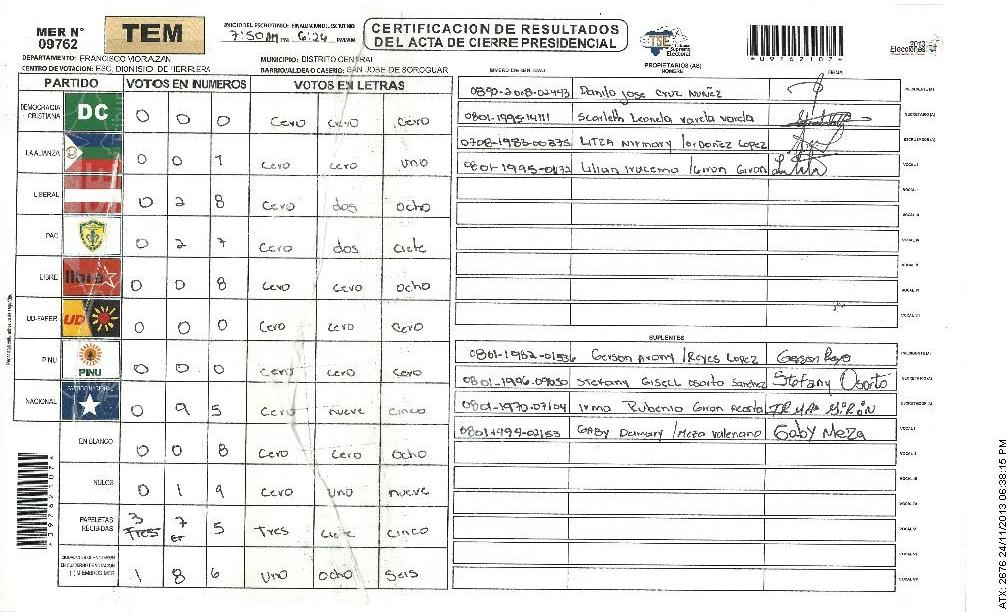 MER N° 09762
TEM
INICIO DEL ESCRUTINIO: FINALIZACION DEL ESCRUTINIO:
7:50 AM PM 6:24 PM/AM
CERTIFICACION DE RESULTADOS
DEL ACTA DE CIERRE PRESIDENCIAL
TSE Tribunal Supremo Electoral
*09762107*
2013 Elecciones
DEPARTAMENTO: FRANCISCO MORAZAN
MUNICIPIO: DISTRITO CENTRAL
CENTRO DE VOTACION: ESC. DIONISIO DE HERRERA
BARRIO/ALDEA O CASERIO: SAN JOSE DE SOROGUAR
PROPIETARIOS (AS)
NOMBRE
FIRMA
PARTIDO VOTOS EN NUMEROS VOTOS EN LETRAS
DEMOCRACIA CRISTIANA DC 0 0 0 cero cero cero
LA ALIANZA 0 0 1 cero cero uno
LIBERAL 0 2 8 cero dos ocho
PAC 0 2 7 cero dos ciete
LIBRE libre 0 0 8 cero cero ocho
UD-FAPER UD 0 0 0 cero cero cero
PINU PINU 0 0 0 cero cero cero
NACIONAL 0 9 5 cero nueve cinco
EN BLANCO 0 0 8 cero cero ocho
NULOS 0 1 9 cero uno nueve
PAPELETAS RECIBIDAS 3 7 5 tres ciete cinco
1 8 6 uno ocho seis
0890-2008-02443 Danilo Jose Cruz Nuñez PRESIDENTE(A)
0801-1995-14111 Scarleth Leonela varela varela SECRETARIO(A)
0708-1983-00375 ESCRUTADOR(A)
0801-1995-0172 Lilian Iracema Giron Giron VOCAL I
VOCAL II
VOCAL III
VOCAL IV
VOCAL V
VOCAL VI
VOCAL VII
SUPLENTES
0801-1982-01536 Gerson Arony Reyes Lopez Gerson Reyes PRESIDENTE(A)
0801-1996-09050 Stefany Gisell Osorto Sanchez Stefany Osorto SECRETARIO(A)
0801-1970-07104 Irma Rubenia Giron Acosta IRMA GIRÓN ESCRUTADOR(A)
Gaby Damary Meza Valeriano Gaby Meza VOCAL I
VOCAL II
VOCAL III
VOCAL IV
VOCAL V
VOCAL VI
VOCAL VII
*09762107*
ATX: 2676 24/11/2013 06:38:15 PM